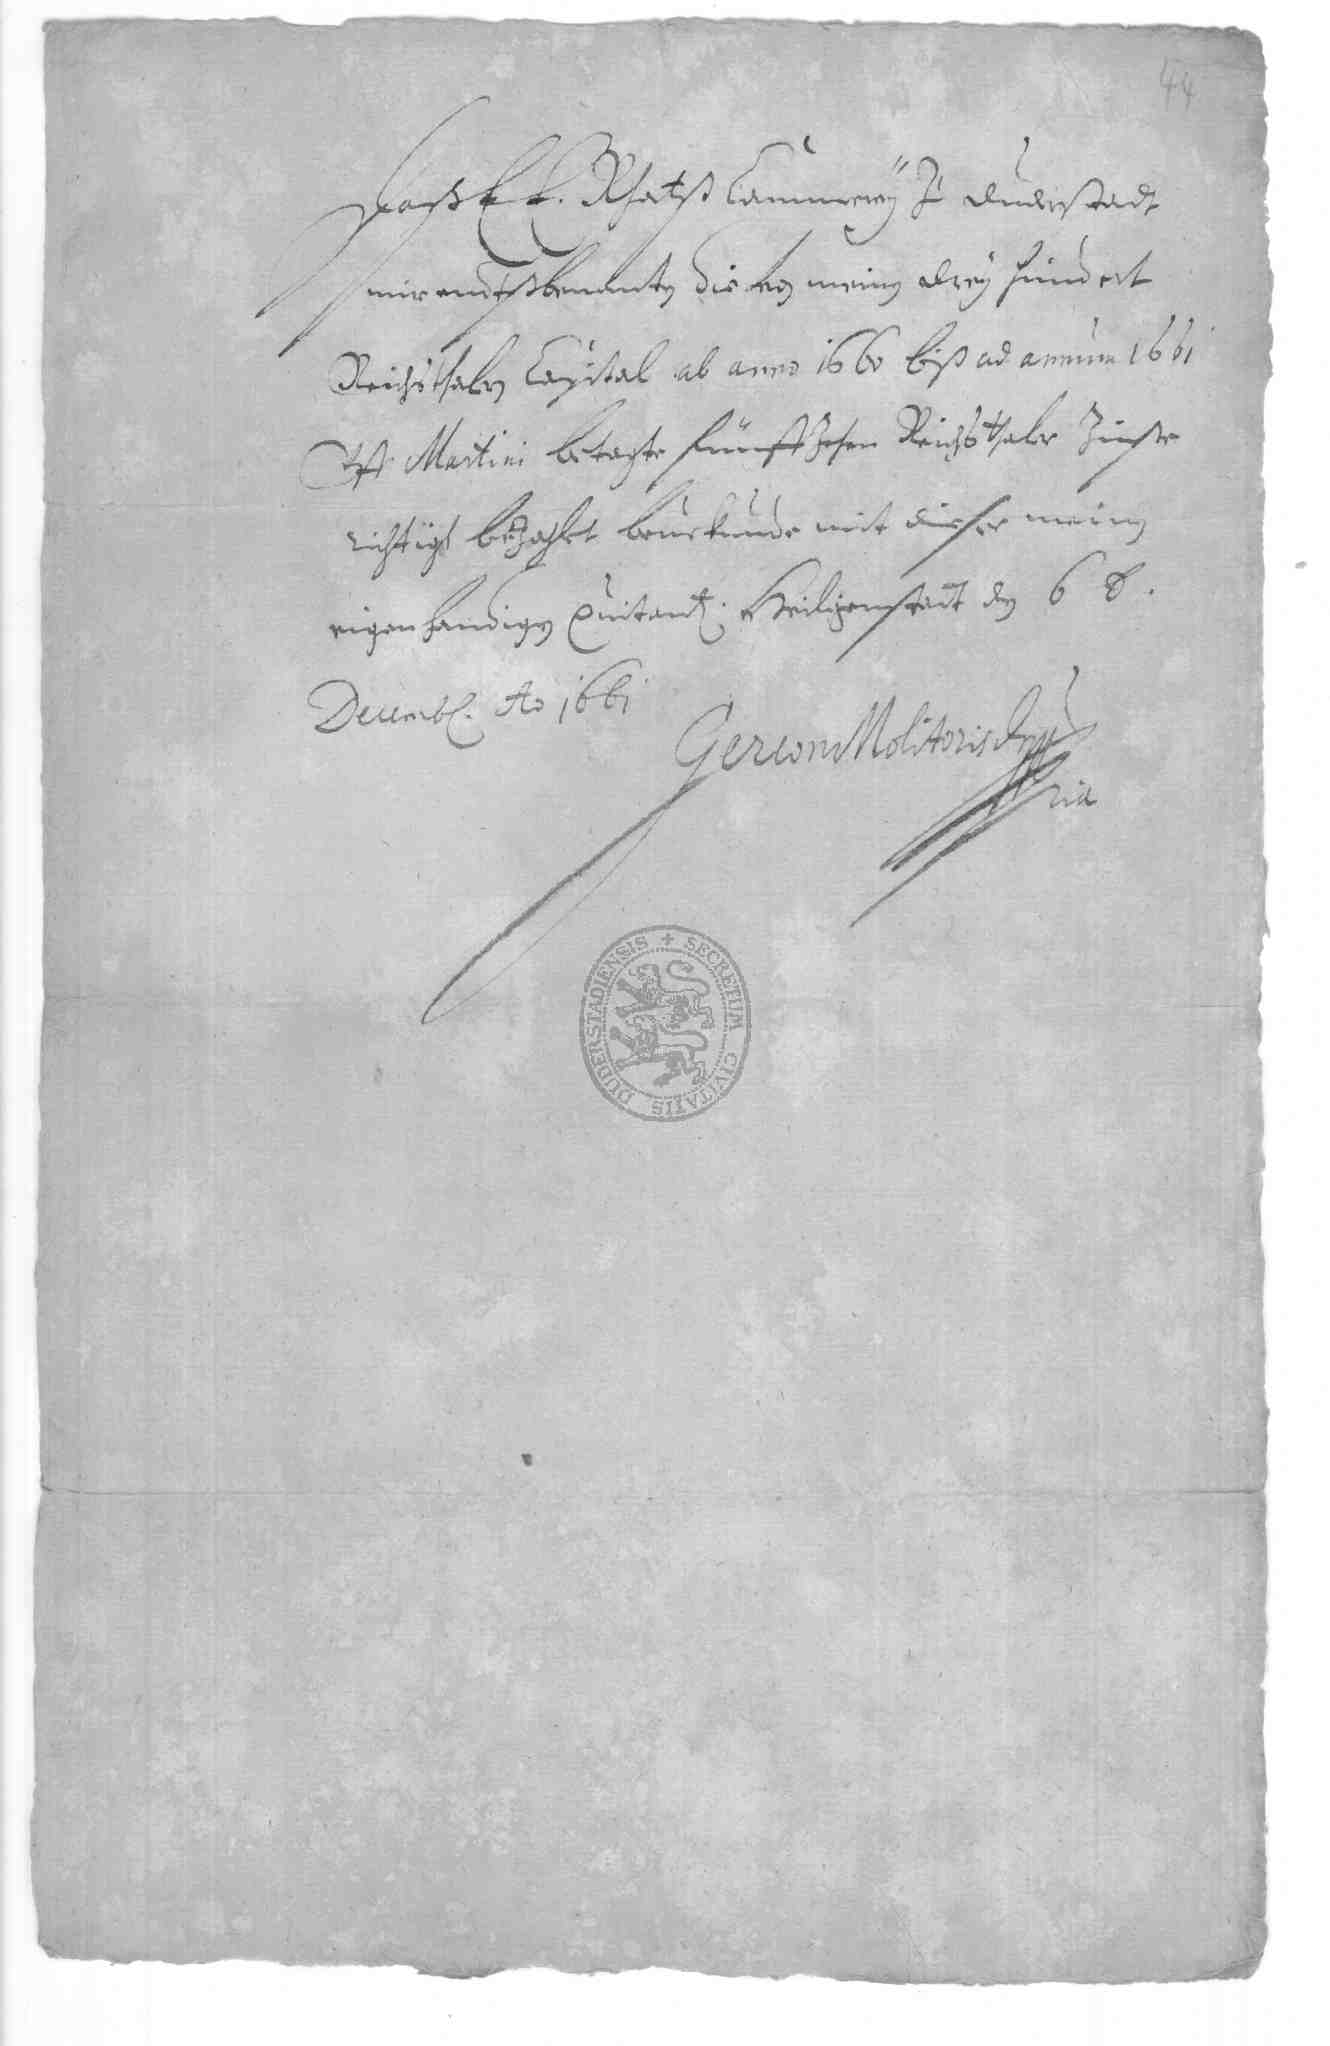 44
Daß E. E. Rhatß Cammerey zu Duderstadt
mir endtßbenanten die von meinen drey hundert
Reichsthalern Capital ab anno 1660 biß ad annum 1661
Martini betagte fünffzehen Reichsthaler Zinse
richtigh bezahlt beurkunde mit dieser meiner
eigenhandigen Quitantz. Heiligenstadt den 6 t.
Decemb. Ao 1661
Gereon Molitoris
ria
SECRETUM CIVITATIS DUDERSTADIENSIS